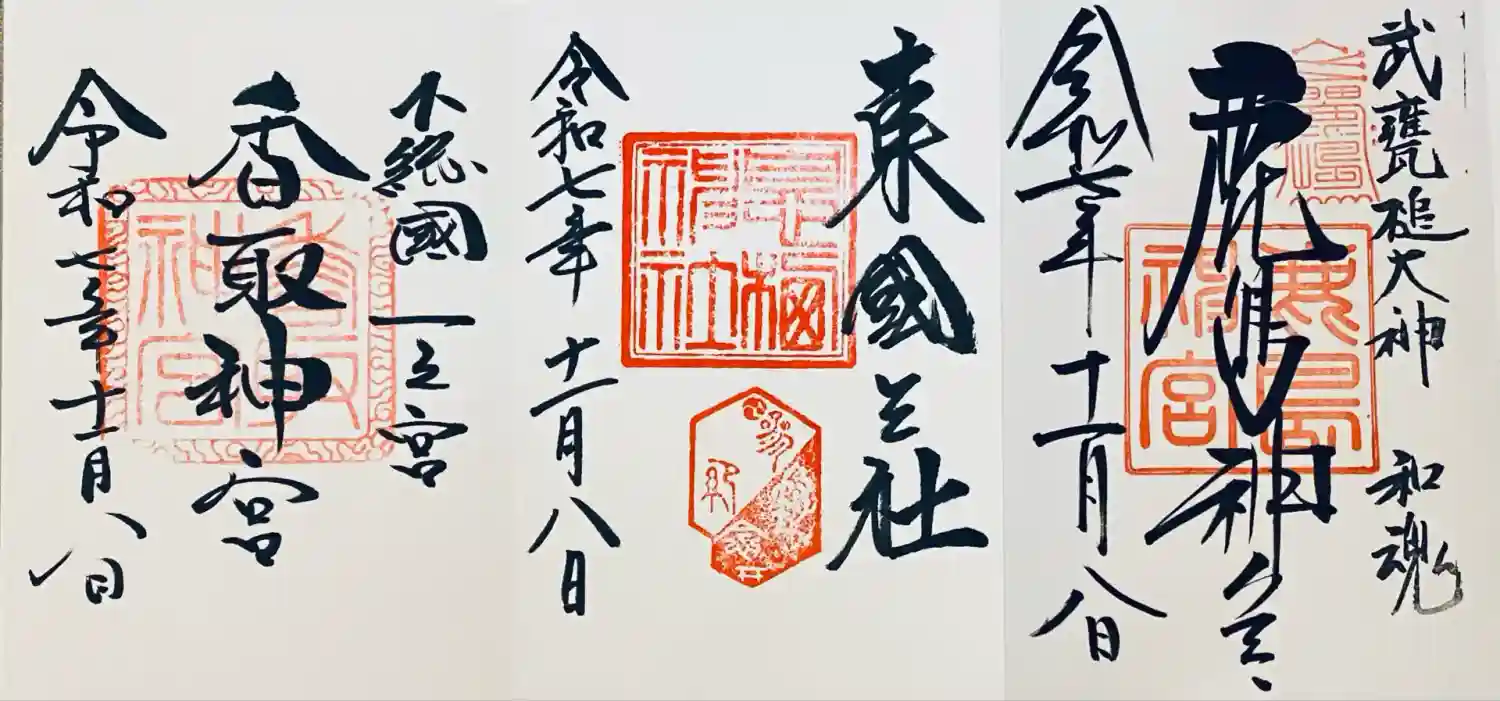 下総國一之宮
香取神宮
香取神宮
令和七年十一月八日
東國三社
息栖神社
令和七年十一月八日
武甕槌大神 和魂
鹿島神宮
鹿島神宮
令和七年十一月八日